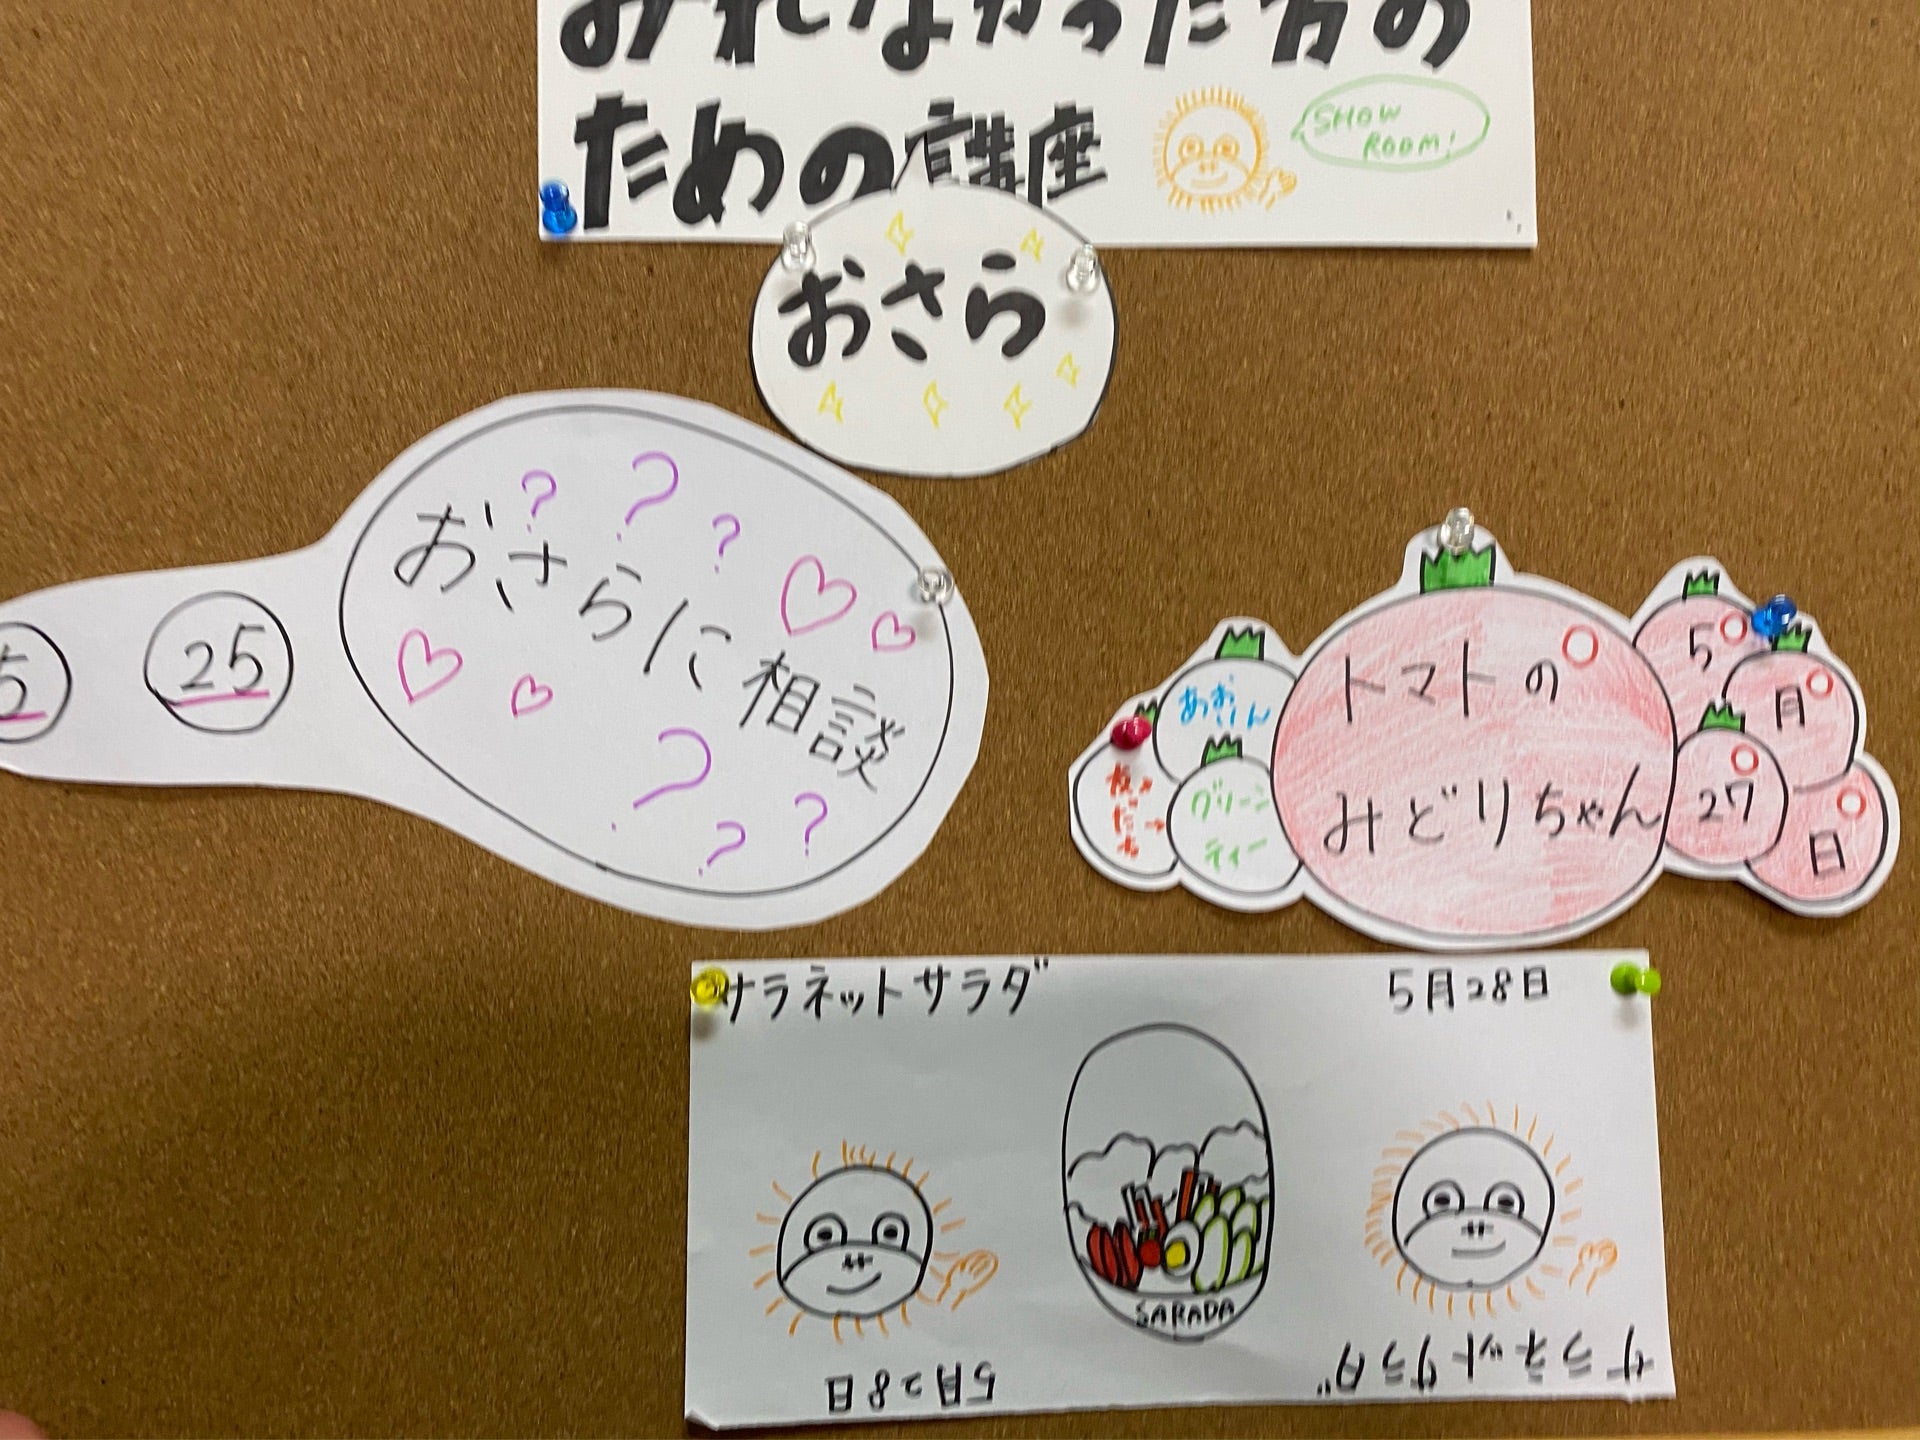 みれなかった方の
ための講座
SHOW
ROOM!
おさら
おさらに相談
5
25
トマトの
みどりちゃん
5
月
27
日
あおさん
グリーン
ティー
サラネットサラダ
5月28日
SARADA
サラネットサラダ
5月28日